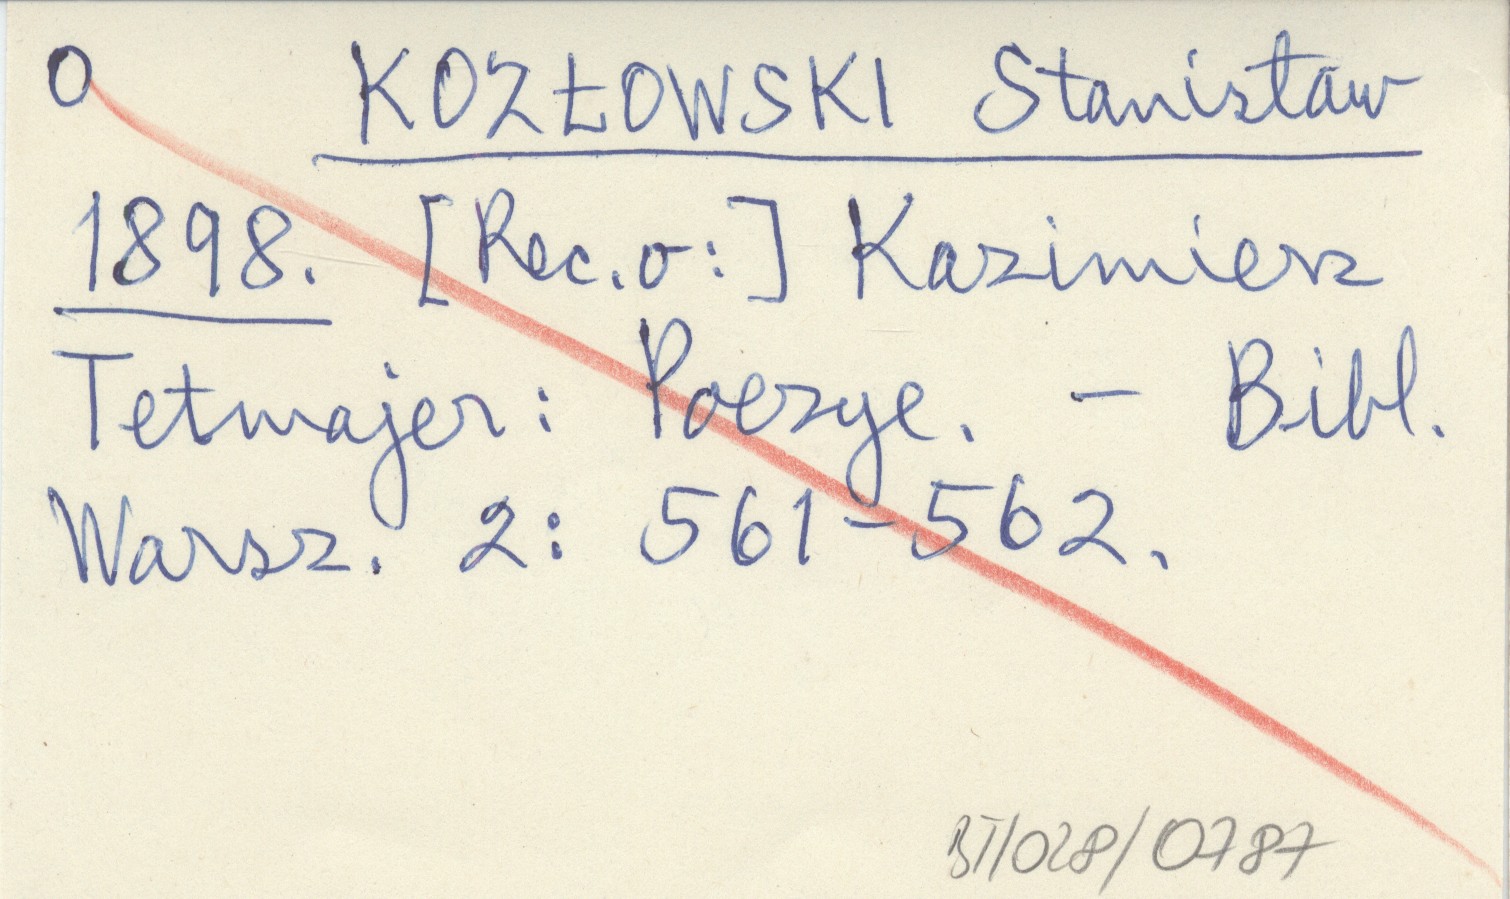 O KOZŁOWSKI Stanisław
1898. [Rec. o:] Kazimierz
Tetmajer: Poezye. - Bibl.
Warsz. 2: 561-562.
BT/028/0787